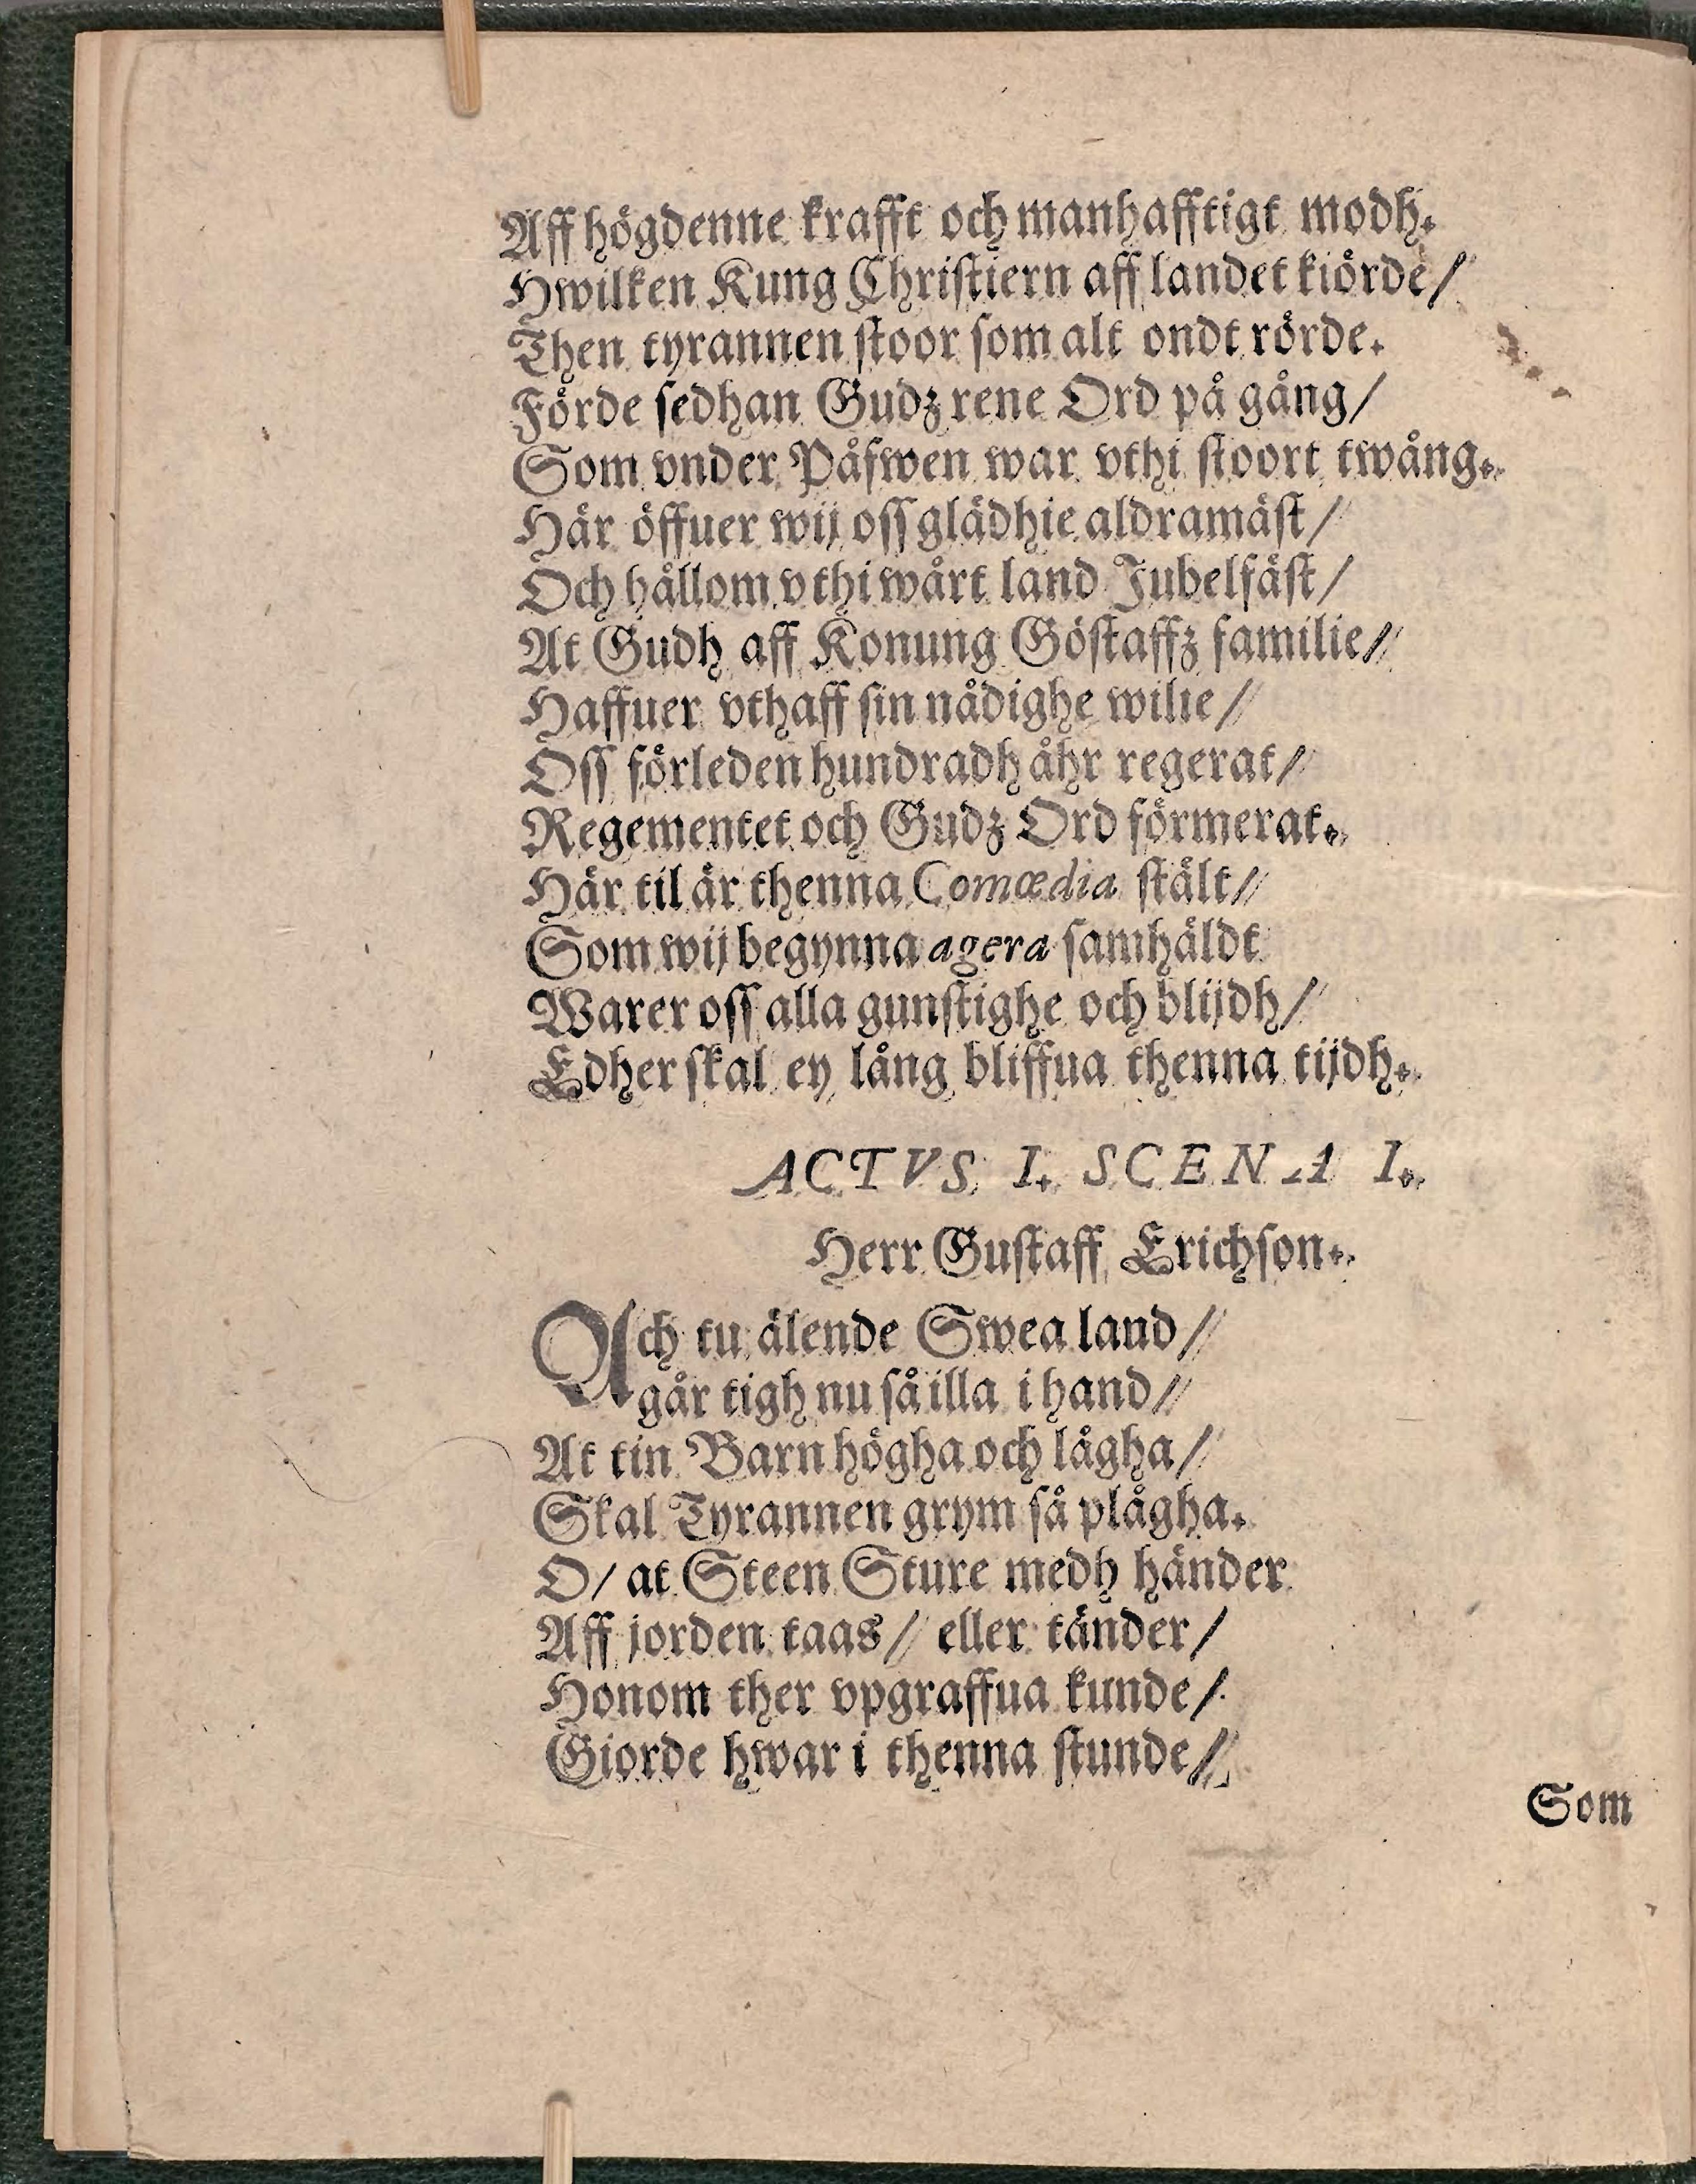 Aff högdenne krafft och manhafftigt modh.
Hwilken Kung Christiern aff landet kiörde/
Then tyrannen stoor som alt ondt rörde.
Förde sedhan Gudz rene Ord på gång/
Som vnder Påfwen war vthi stoort twång.
Här öffuer wij oss glädhie aldramäst/
Och hållom vthi wårt land Jubelfäst/
At Gudh aff Konung Göstaffz familie/
Haffuer vthaff sin nådighe wilie/
Oss förleden hundradh åhr regerat/
Regementet och Gudz Ord förmerat.
Här til är thenna Comœdia stält/
Som wij begynna agera samhäldt
Warer oss alla gunstighe och blijdh/
Edher skal ey lång bliffua thenna tijdh.
ACTVS I. SCENA I.
Herr Gustaff Erichson.
Ach tu älende Swea land/
går tigh nu så illa i hand/
At tin Barn högha och lågha/
Skal Tyrannen grym så plågha.
O/ at Steen Sture medh händer
Aff jorden taas/ eller tänder/
Honom ther vpgraffua kunde/
Giorde hwar i thenna stunde/
Som